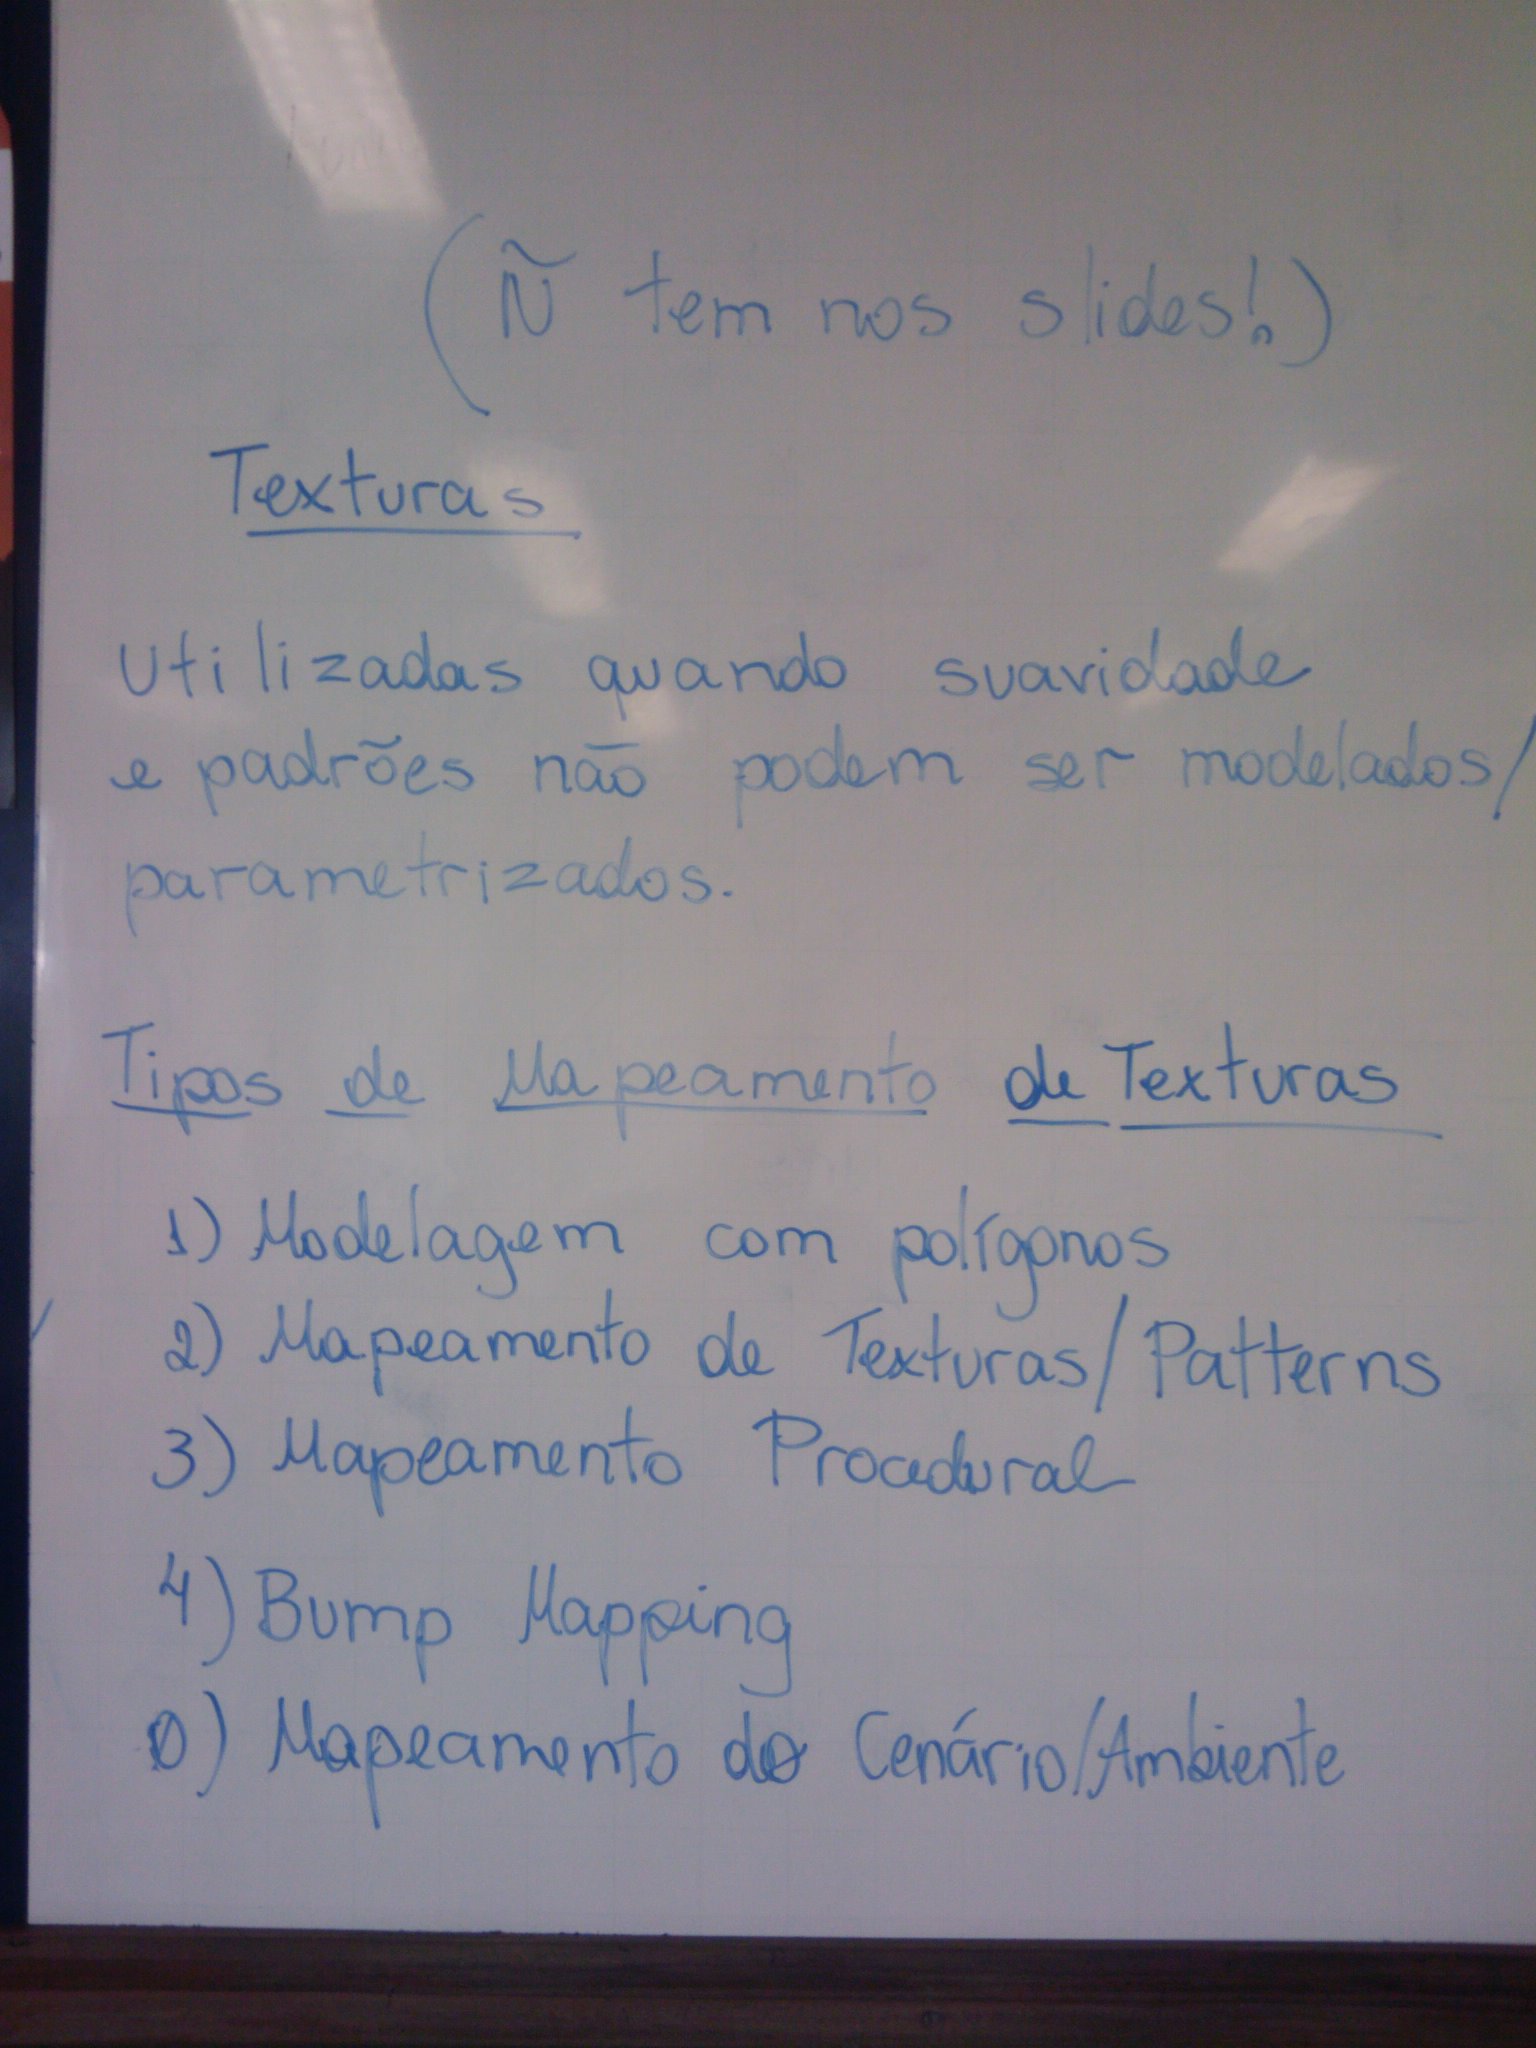 (Ñ tem nos slides!)
Texturas
Utilizadas quando suavidade
e padrões não podem ser modelados/
parametrizados.
Tipos de Mapeamento de Texturas
1) Modelagem com polígonos
2) Mapeamento de Texturas/Patterns
3) Mapeamento Procedural
4) Bump Mapping
0) Mapeamento do Cenário/Ambiente